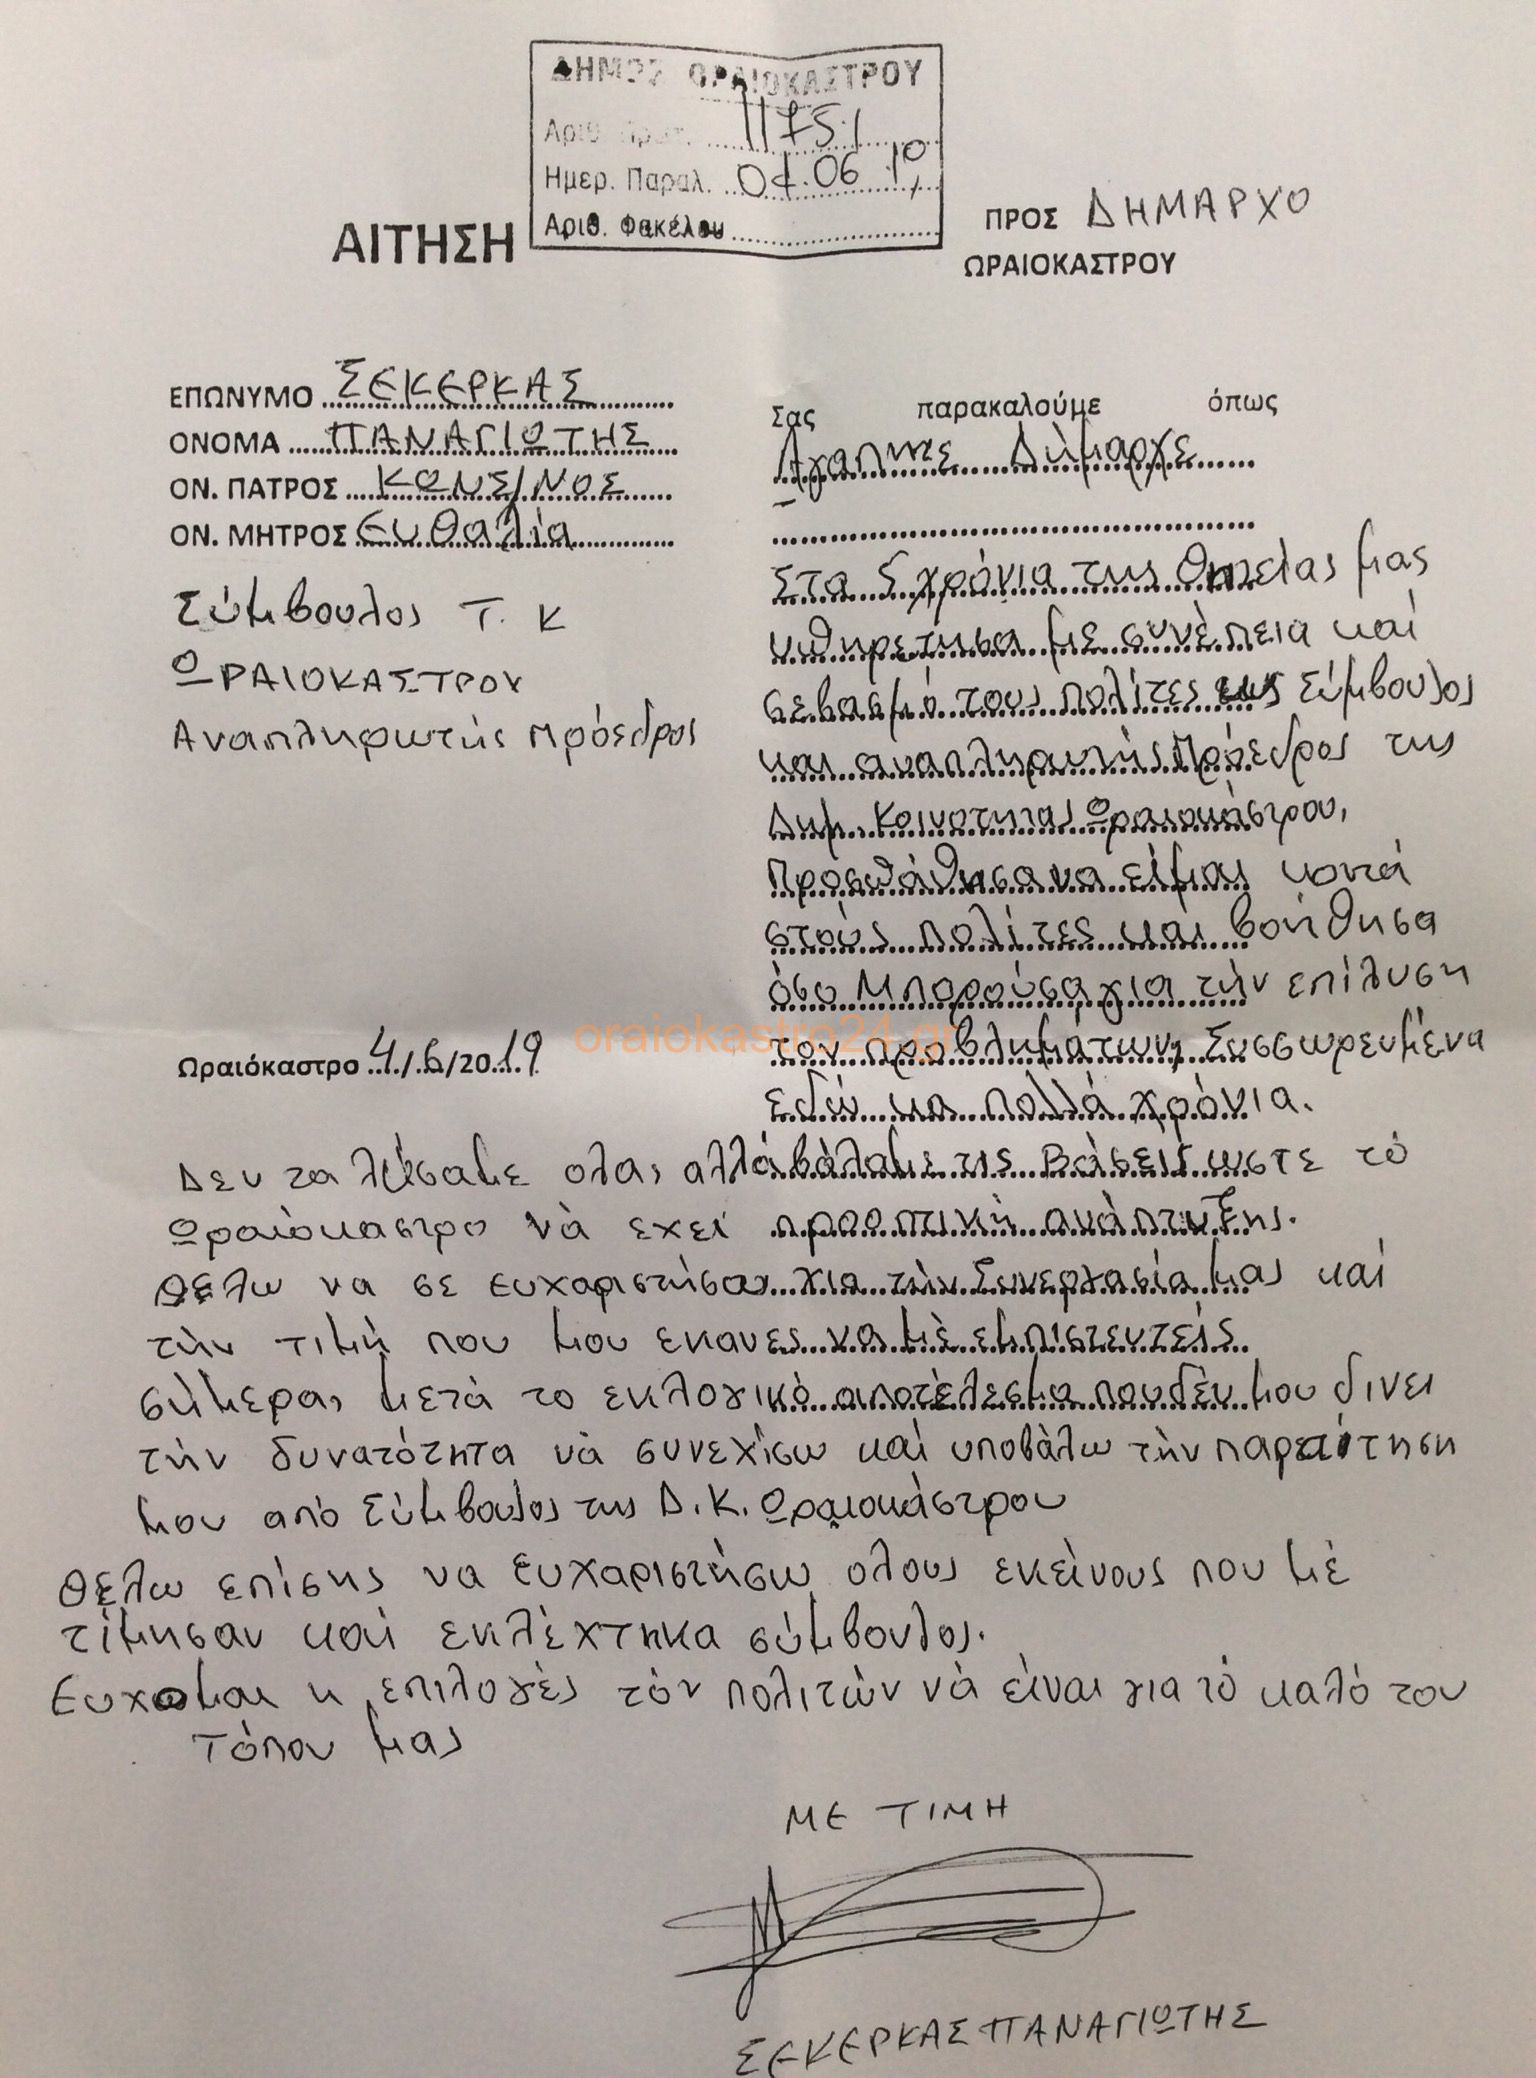 ΔΗΜΟΣ ΩΡΑΙΟΚΑΣΤΡΟΥ
Αριθ. Πρωτ. 11751
Ημερ. Παραλ. 04.06.19
Αριθ. Φακέλου
ΑΙΤΗΣΗ
ΠΡΟΣ ΔΗΜΑΡΧΟ
ΩΡΑΙΟΚΑΣΤΡΟΥ
ΕΠΩΝΥΜΟ ΣΕΚΕΡΚΑΣ
ΟΝΟΜΑ ΠΑΝΑΓΙΩΤΗΣ
ΟΝ. ΠΑΤΡΟΣ ΚΩΝΣ/ΝΟΣ
ΟΝ. ΜΗΤΡΟΣ Ευθαλία
Σύμβουλος Τ. Κ
ΩΡΑΙΟΚΑΣΤΡΟΥ
Αναπληρωτής Πρόεδρος
Ωραιόκαστρο 4/6/2019
Σας παρακαλούμε όπως
Αγαπητε Δήμαρχε
Στα 5 χρόνια της θητείας μας
υπηρετησα με συνέπεια καί
σεβασμό τους πολίτες ως Σύμβουλος
και αναπληρωτής Πρόεδρος της
Δημ. Κοινοτητας Ωραιοκάστρου,
Προσπάθησα να είμαι κοντά
στούς πολίτες και βοήθησα
όσο Μπορούσα για τήν επίλυση
τον προβλημάτων, Συσσωρευμένα
εδώ και πολλά χρόνια.
Δεν τα λύσαμε ολα, αλλά βάλαμε τις Βάσεις ωστε τό
Ωραιόκαστρο νὰ εχει προοπτική ανάπτυξης.
Θέλω να σε ευχαριστήσω για τήν Συνεργασία μας καί
τὴν τιμή που μου εκανες να μὲ εμπιστευτείς
σήμερα, μετά το εκλογικό αποτέλεσμα που δέν μου δινει
τήν δυνατότητα νὰ συνεχίσω καί υποβάλω τὴν παραίτηση
μου από Σύμβουλος της Δ.Κ. Ωραιοκάστρου
Θέλω επίσης να ευχαριστήσω ολους εκείνους που μέ
τίμησαν καί εκλέχτηκα σύμβουλος.
Ευχομαι η επιλογές τόν πολιτών νὰ είναι για τό καλό του
Τόπου μας
ΜΕ ΤΙΜΗ
ΣΕΚΕΡΚΑΣ ΠΑΝΑΓΙΩΤΗΣ
oraiokastro24.gr